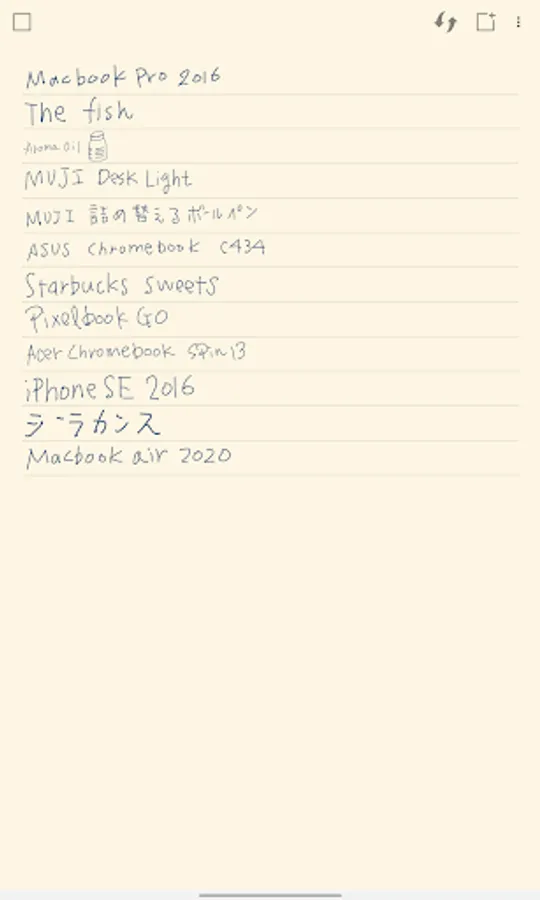 Macbook Pro 2016
The fish
Aroma Oil
MUJI Desk Light
MUJI 詰め替えるボールペン
ASUS Chromebook C434
Starbucks sweets
Pixelbook GO
Acer Chromebook Spin13
iPhone SE 2016
シーラカンス
Macbook air 2020